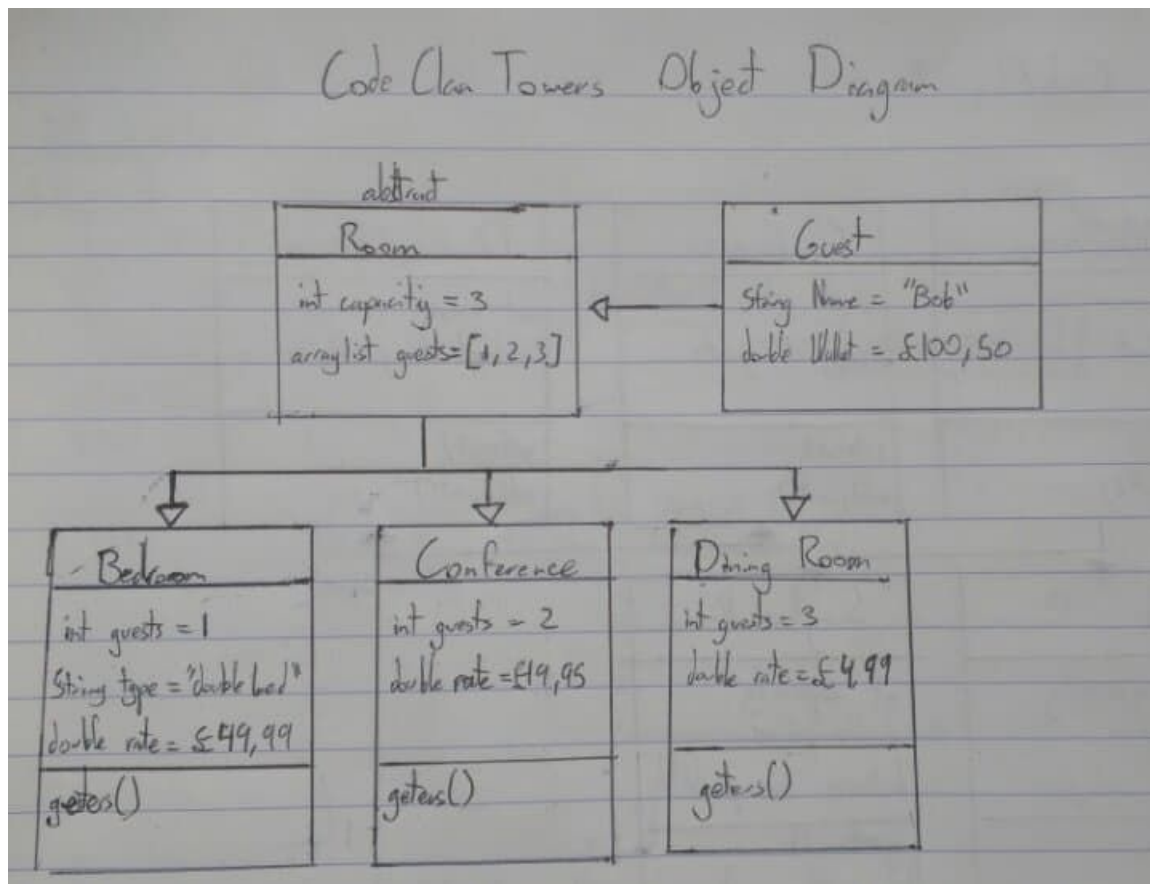 Code Clan Towers Object Diagram
abstract
Room
int capacity = 3
arraylist guests=[1, 2, 3]
Guest
String Name = "Bob"
double Wallet = £100,50
Bedroom
int guests = 1
String type = "double bed"
double rate = £49,99
geters()
Conference
int guests = 2
double rate = £19,95
geters()
Dining Room
int guests = 3
double rate = £4,99
geters()